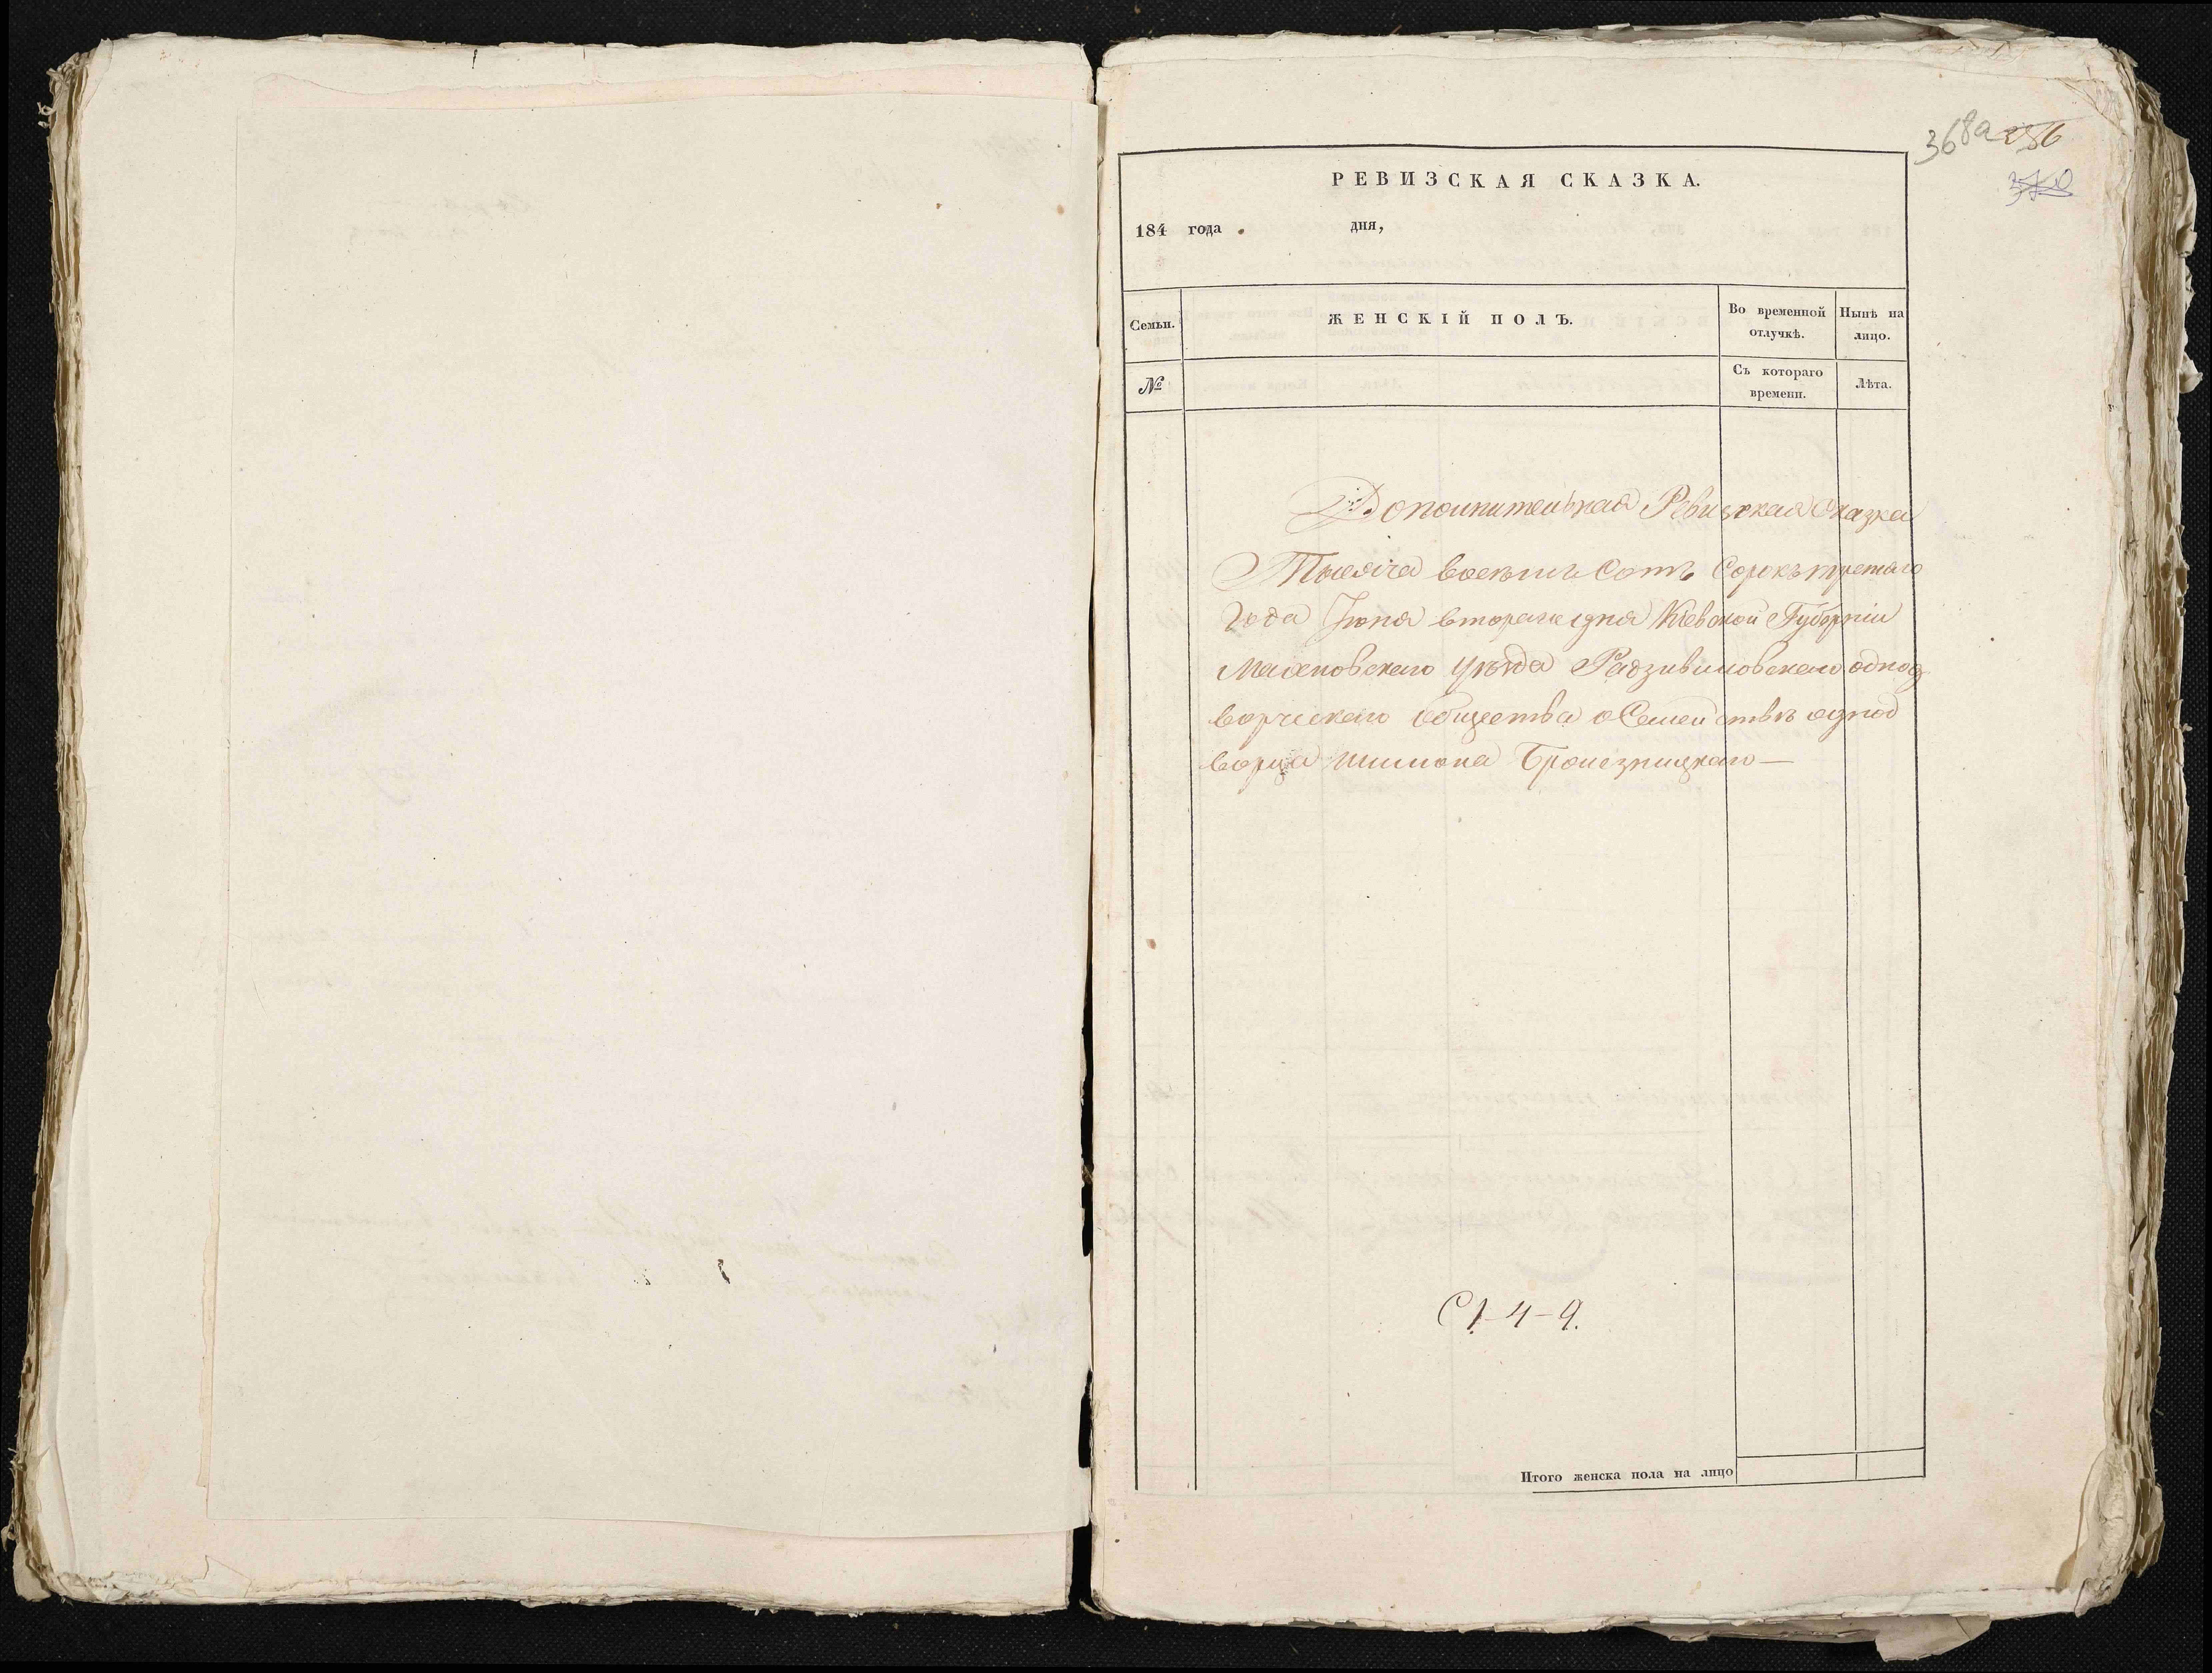 368а 256
370
РЕВИЗСКАЯ СКАЗКА.
184 года дня,
Семьи. ЖЕНСКІЙ ПОЛЪ. Во временной отлучкѣ. Нынѣ на лицо.
№ Съ котораго времени. Лѣта.
Дополнительная Ревизская Сказка
Тысяча восемь Сотъ Сорокъ третаго
Года Іюня втораго дня Кіевской Губерніи
Махновскаго уѣзда Радзивиловскаго однод
ворческаго общества о Семействѣ однод
ворца Шимона
С 1-4-9.
Итого женска пола на лицо